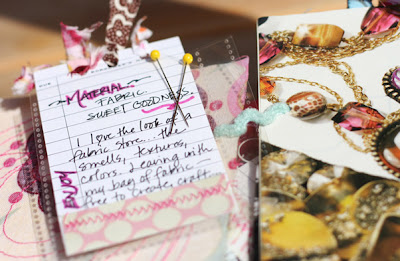 MATERIAL:
FABRIC.
SWEET GOODNESS.
I love the look of a
fabric store... the
smells, textures,
colors. Leaving with
my bag of fabric —
free to create, craft
ENJOY